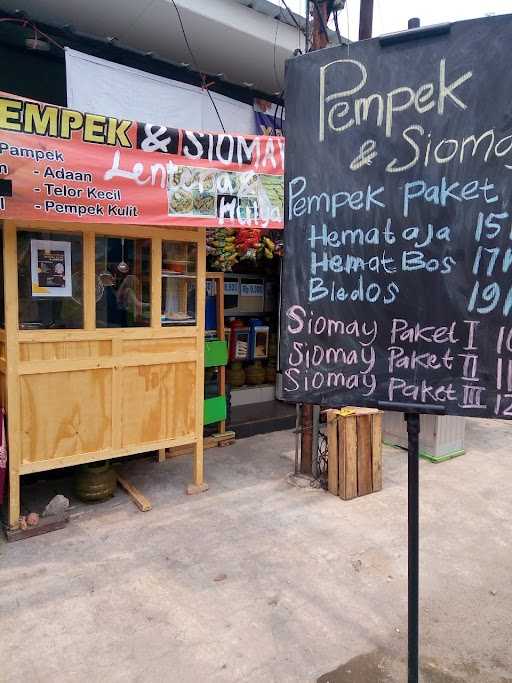 EMPEK & SIOMAY
Pampek
- Adaan
- Telor Kecil
- Pempek Kulit
Lentera
Mulya
Pempek
& Siomay
Pempek Paket
Hemat aja 15
Hemat Bos 17
Bledos 19
Siomay Paket I
Siomay Paket II
Siomay Paket III